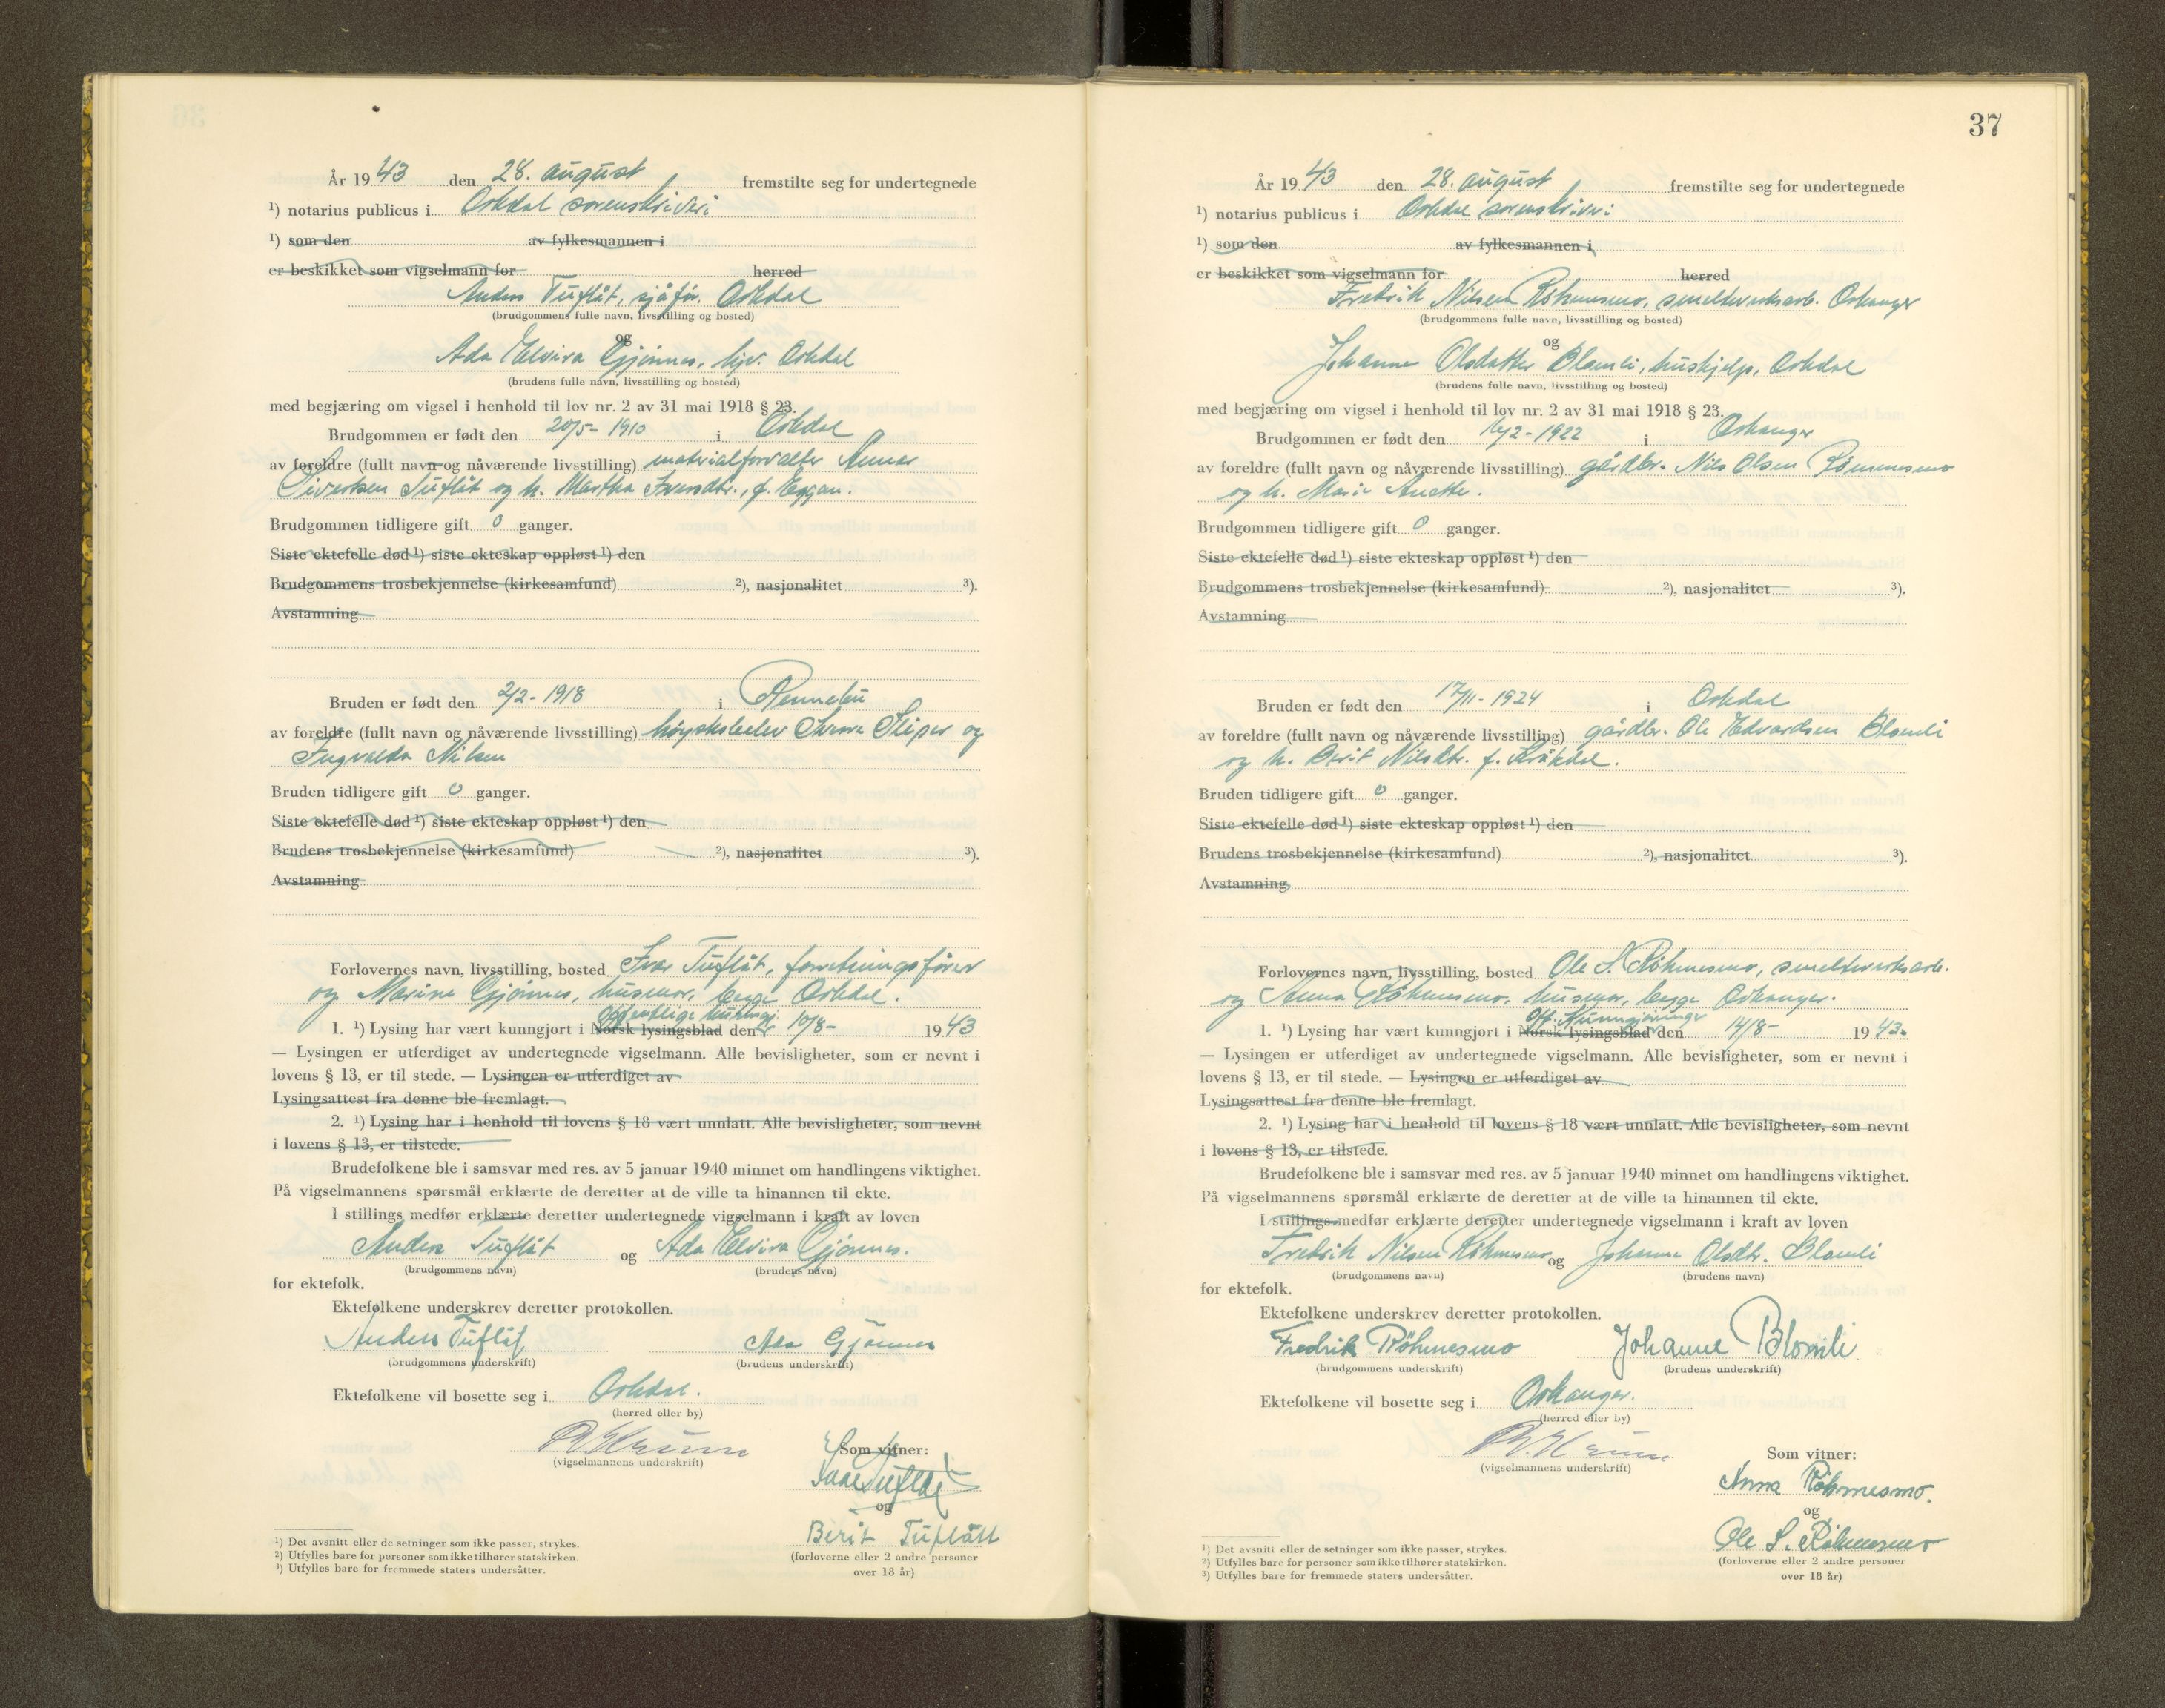 År 1943 den 28. august fremstilte seg for undertegnede
¹) notarius publicus i Orkdal sorenskriveri
¹) som den av fylkesmannen i
er beskikket som vigselmann for herred
Anders Tuflåt, sjåfør. Orkdal
(brudgommens fulle navn, livsstilling og bosted)
og
Ada Elvira Gjønnes, hjv. Orkdal
(brudens fulle navn, livsstilling og bosted)
med begjæring om vigsel i henhold til lov nr. 2 av 31 mai 1918 § 23.
Brudgommen er født den 20/5- 1910 i Orkdal
av foreldre (fullt navn og nåværende livsstilling) materialforvalter
Sivertsen Tuflåt og h. Martha Iversdtr., f. Eggan.
Brudgommen tidligere gift 0 ganger.
Siste ektefelle død ¹) siste ekteskap oppløst ¹) den
Brudgommens trosbekjennelse (kirkesamfund) ²), nasjonalitet ³).
Avstamning
Bruden er født den 2/2- 1918 i Rennebu
av foreldre (fullt navn og nåværende livsstilling) høyskoleelev Sliper og
Ingvalda Nilsen
Bruden tidligere gift 0 ganger.
Siste ektefelle død ¹) siste ekteskap oppløst ¹) den
Brudens trosbekjennelse (kirkesamfund) ²), nasjonalitet ³).
Avstamning
Forlovernes navn, livsstilling, bosted Ivar Tuflåt, forretningsfører
og Marine Gjønnes, husmor, begge Orkdal.
offentlige kunngj.
1. ¹) Lysing har vært kunngjort i Norsk lysingsblad den 10/8- 1943
— Lysingen er utferdiget av undertegnede vigselmann. Alle bevisligheter, som er nevnt i
lovens § 13, er til stede. — Lysingen er utferdiget av
Lysingsattest fra denne ble fremlagt.
2. ¹) Lysing har i henhold til lovens § 18 vært unnlatt. Alle bevisligheter, som nevnt
i lovens § 13, er tilstede.
Brudefolkene ble i samsvar med res. av 5 januar 1940 minnet om handlingens viktighet.
På vigselmannens spørsmål erklærte de deretter at de ville ta hinannen til ekte.
I stillings medfør erklærte deretter undertegnede vigselmann i kraft av loven
Anders Tuflåt og Ada Elvira Gjønnes.
(brudgommens navn) (brudens navn)
for ektefolk.
Ektefolkene underskrev deretter protokollen.
Anders Tuflåt Ada Gjønnes
(brudgommens underskrift) (brudens underskrift)
Ektefolkene vil bosette seg i Orkdal.
(herred eller by)
(vigselmannens underskrift)
Som vitner:
Ivar Tuflåt
og
Berit Tuflått
(forloverne eller 2 andre personer
over 18 år)
¹) Det avsnitt eller de setninger som ikke passer, strykes.
²) Utfylles bare for personer som ikke tilhører statskirken.
³) Utfylles bare for fremmede staters undersåtter.
37
År 1943 den 28. august fremstilte seg for undertegnede
¹) notarius publicus i Orkdal sorenskriveri
¹) som den av fylkesmannen i
er beskikket som vigselmann for herred
Fredrik Nilsen Röhmesmo, smelteverksarb. Orkanger
(brudgommens fulle navn, livsstilling og bosted)
og
Johanne Olsdatter Blomli, hushjelp, Orkdal
(brudens fulle navn, livsstilling og bosted)
med begjæring om vigsel i henhold til lov nr. 2 av 31 mai 1918 § 23.
Brudgommen er født den 16/2- 1922 i Orkanger
av foreldre (fullt navn og nåværende livsstilling) gårdbr. Nils Olsen Römmesmo
og h. Marie Anette.
Brudgommen tidligere gift 0 ganger.
Siste ektefelle død ¹) siste ekteskap oppløst ¹) den
Brudgommens trosbekjennelse (kirkesamfund) ²), nasjonalitet ³).
Avstamning
Bruden er født den 17/11- 1924 i Orkdal
av foreldre (fullt navn og nåværende livsstilling) gårdbr. Ole Edvardsen Blomli
og h. Berit Nilsdtr. f. Kråkdal.
Bruden tidligere gift 0 ganger.
Siste ektefelle død ¹) siste ekteskap oppløst ¹) den
Brudens trosbekjennelse (kirkesamfund) ²), nasjonalitet ³).
Avstamning
Forlovernes navn, livsstilling, bosted Ole S. Röhmesmo, smelteverksarb.
og Anna Röhmesmo, husmor, begge Orkanger.
Off. Kunngjøringer
1. ¹) Lysing har vært kunngjort i Norsk lysingsblad den 14/8- 1943.
— Lysingen er utferdiget av undertegnede vigselmann. Alle bevisligheter, som er nevnt i
lovens § 13, er til stede. — Lysingen er utferdiget av
Lysingsattest fra denne ble fremlagt.
2. ¹) Lysing har i henhold til lovens § 18 vært unnlatt. Alle bevisligheter, som nevnt
i lovens § 13, er tilstede.
Brudefolkene ble i samsvar med res. av 5 januar 1940 minnet om handlingens viktighet.
På vigselmannens spørsmål erklærte de deretter at de ville ta hinannen til ekte.
I stillings medfør erklærte deretter undertegnede vigselmann i kraft av loven
Fredrik Nilsen Röhmesmo og Johanne Olsdtr. Blomli
(brudgommens navn) (brudens navn)
for ektefolk.
Ektefolkene underskrev deretter protokollen.
Fredrik Röhmesmo Johanne Blomli
(brudgommens underskrift) (brudens underskrift)
Ektefolkene vil bosette seg i Orkanger.
(herred eller by)
(vigselmannens underskrift)
Som vitner:
Anna Röhmesmo.
og
Ole S. Röhmesmo
(forloverne eller 2 andre personer
over 18 år)
¹) Det avsnitt eller de setninger som ikke passer, strykes.
²) Utfylles bare for personer som ikke tilhører statskirken.
³) Utfylles bare for fremmede staters undersåtter.